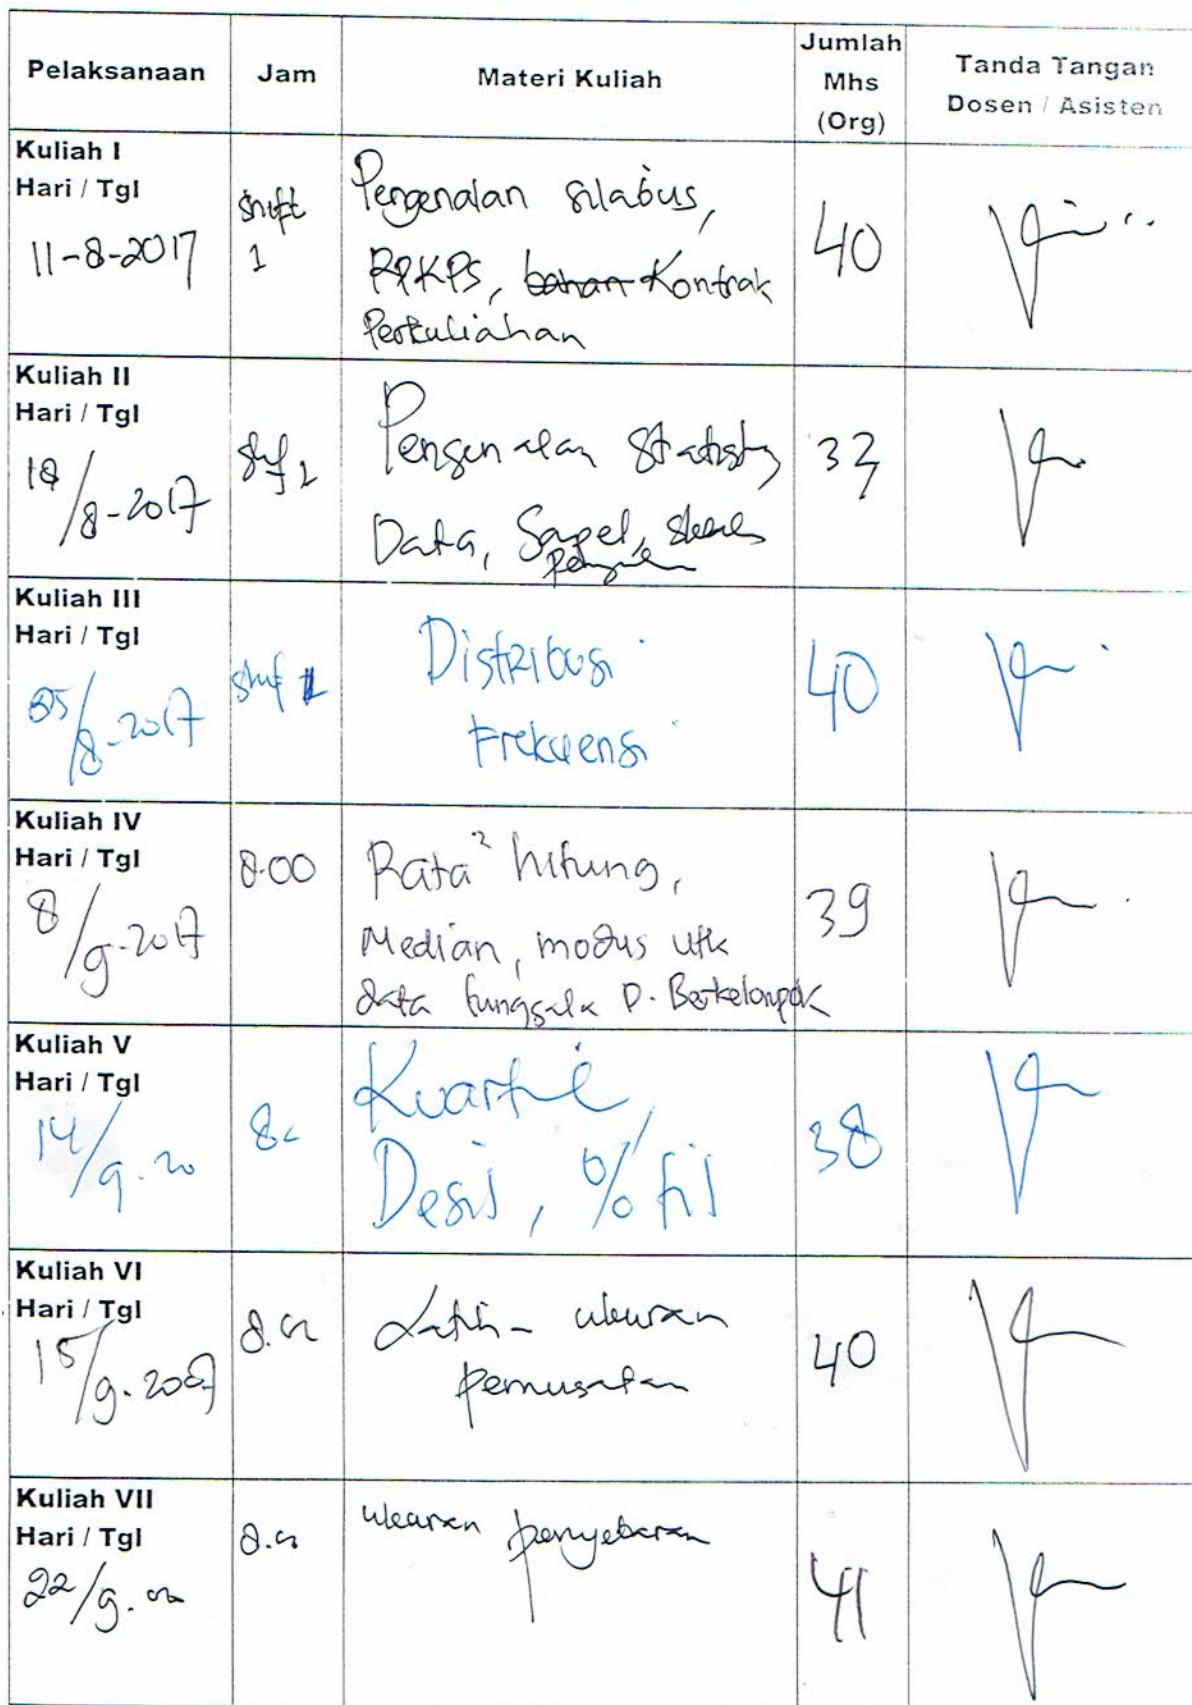 Pelaksanaan Jam Materi Kuliah Jumlah Mhs (Org) Tanda Tangan Dosen / Asisten
Kuliah I
Hari / Tgl
11-8-2017
shift
1
Pengenalan silabus,
RPKPS, bahan Kontrak
Perkuliahan
40
Kuliah II
Hari / Tgl
18/8-2017
Pengenalan
Data,
Kuliah III
Hari / Tgl
/8-2017
Distribusi
Frekuensi
40
Kuliah IV
Hari / Tgl
8/9-2017
8.00
Rata² hitung,
Median, modus utk
data D. Berkelompok
39
Kuliah V
Hari / Tgl
14/9-20
Kuartil,
Desil, %til
38
Kuliah VI
Hari / Tgl
15/9-2017
ukuran
pemusatan
40
Kuliah VII
Hari / Tgl
22/9.
ukuran penyebaran
41